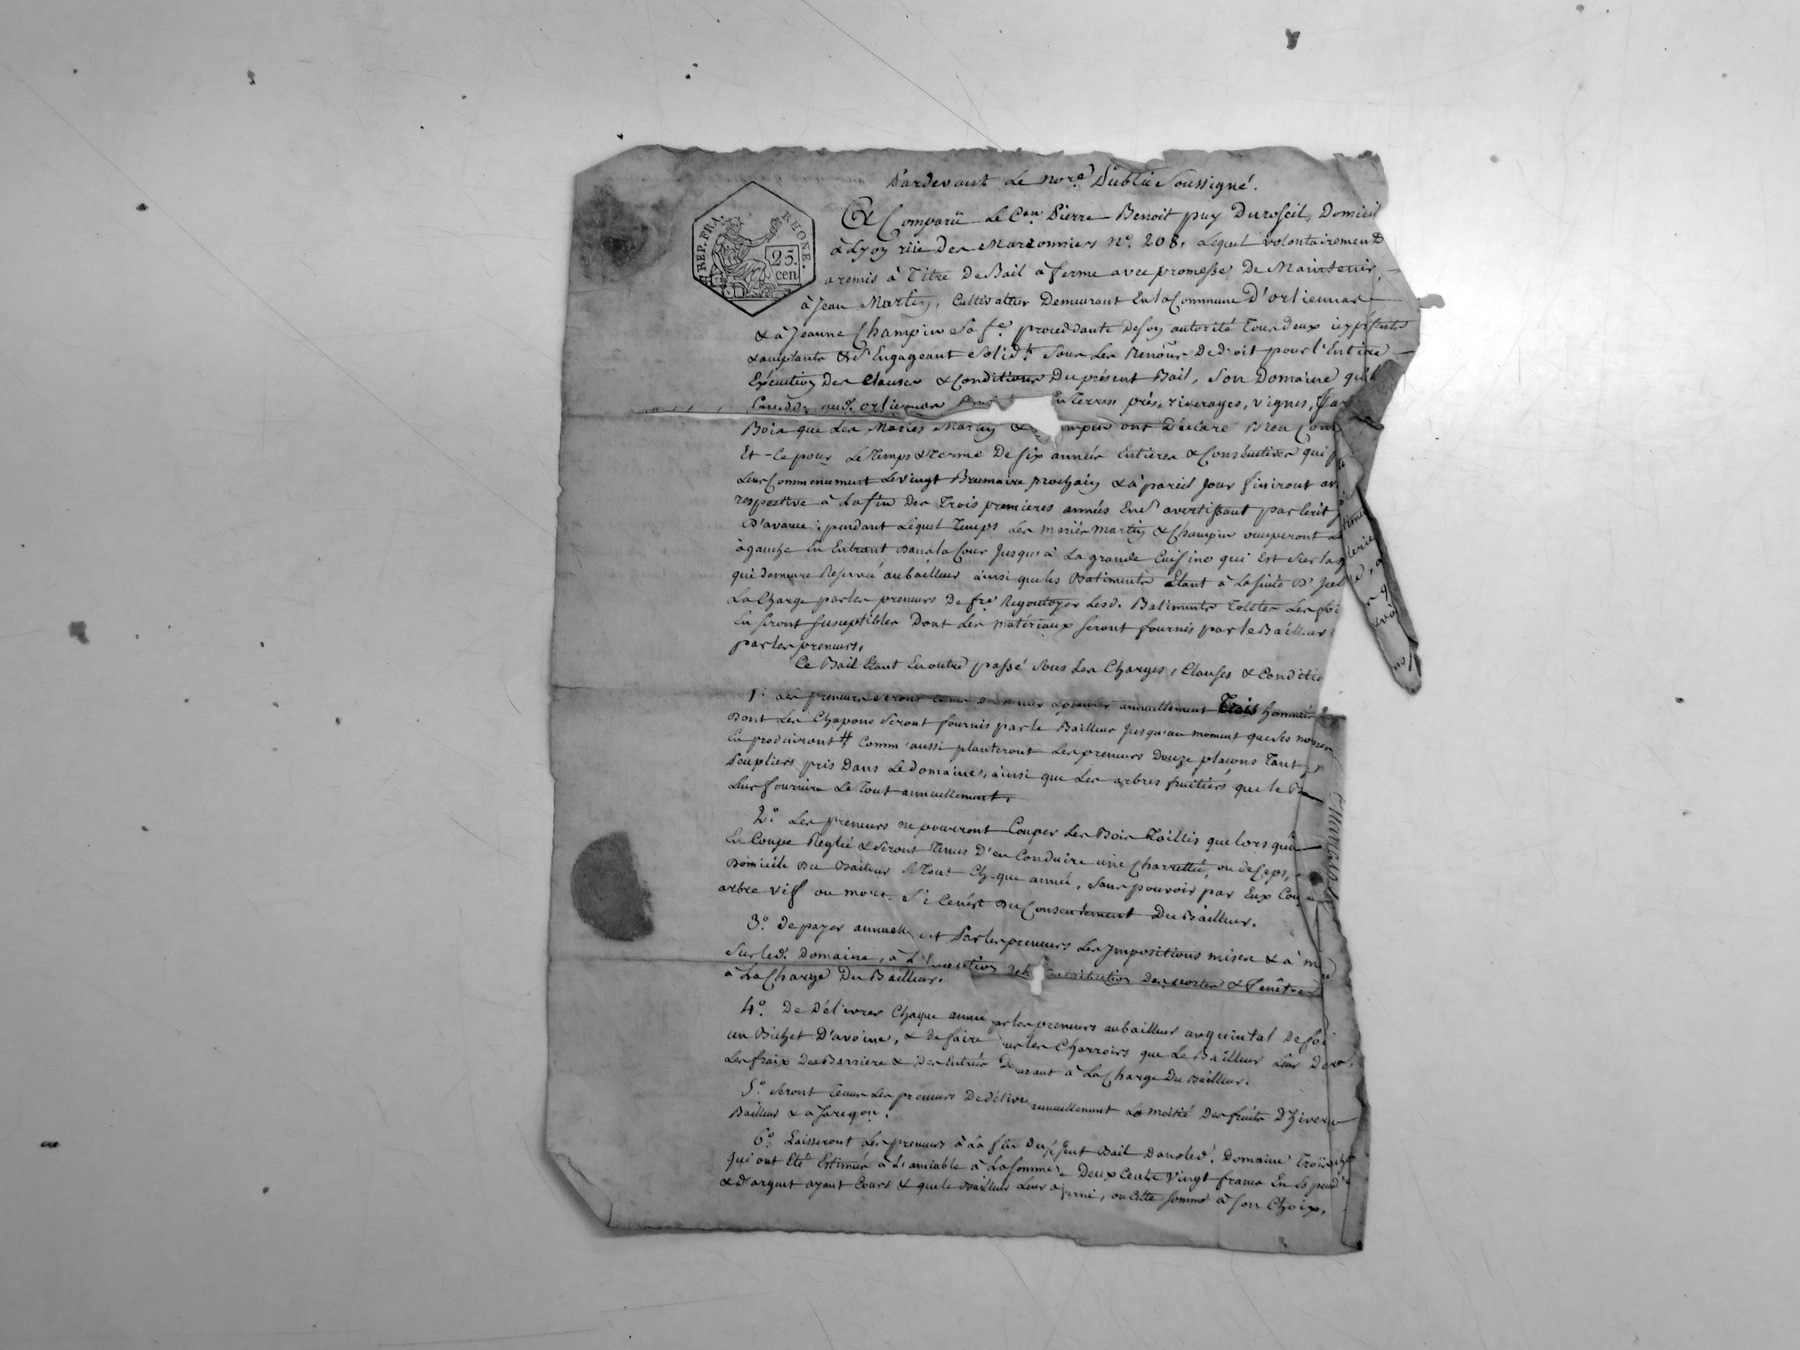 Pardevant Le Nore. Public Soussigné.
REP. FRA. RHONE. 25. cen
à Comparü Le Cen. Pierre Benoit puy Duroseil, Domicil
à Lyon rüe des Maronniers No. 208. Lequel volontairement
a remis à Titre De Bail à ferme avec promesse De Maintenir,
à Jean Martin, Cultivateur Demeurant En la Commune D'orliennas
& à Jeanne Champin Sa fe. procedante de son autorité Tous deux icy présents
acceptants & S'Engageant Solidt. Sous Les Renons De Droit pour l'Entiere
Exécution Des Clauses & Conditions Du présent Bail, Son Domaine qu'il
aud. orliennas En Terres, prés, riverages, vignes,
Bois que Les Mariés Martin & Champin ont Déclaré Bien
Et Ce pour Le Temps & Terme De six années Entieres & Consécutives qui
Leur Commencement Le vingt Brumaire prochain & à pareil Jour finiront
respective à La fin Des Trois premieres années En S'avertissant par Ecrit
D'avance; pendant Lequel Temps Les mariés Martin & Champin occuperont
à gauche En Entrant Dans la Cour Jusqu'à La grande Cuisine qui Est sur la
qui Demeure Reservé au bailleur ainsi que les Batiments Etant à La suite
La Charge par les preneurs De fre. Regoutoyer Lesd. Batiments Toutes Les foi
En seront susceptibles Dont Les matériaux seront fournis par le Bailleur
par les preneurs.
Ce Bail Etant En outre passé sous Les Charges, Clauses & Conditi
1o. Les preneurs seront tenus annuellement Trois hommées
Dont Les Chapons seront fournis par le Bailleur Jusqu'au moment que Les
En produiront # Comm'aussi planteront Les preneurs Douze plançons Tant
Peupliers pris Dans Le domaine, ainsi que Les arbres fruitiers que le
Leur fournira Le Tout annuellement.
2o. Les preneurs ne pourront Couper Les Bois Taillis que lors qu'
En Coupe Reglée & seront Tenus D'en Conduire une Charrettée, ou de Ceps,
Domicile Du Bailleur Le Tout Chaque année, sans pouvoir par Eux
arbre vif ou mort Si Ce n'est Du Consentement Du Bailleur.
3o. De payer annuellement Par les preneurs Les Impositions mises & à
Sur led. Domaine, à L'Exception Des portes & Fenêtres
à La Charge Du Bailleur.
4o. De Délivrer Chaque année par les preneurs au bailleur un quintal De foi
un Bichet D'avoine, & de faire Les Charrois que Le Bailleur Leur
Les fraix Des Barriere & Des Entrée Demeurant à La Charge Du Bailleur.
5o. Seront Tenus Les preneurs De délivrer annuellement La moitié Des fruits D'hiver
Bailleur & à
6o. Laisseront Les preneurs à La fin Du présent Bail Dans led. Domaine Trois
qui ont Eté Estimés à L'amiable à La somme De Deux Cents Vingt francs En
& D'argent ayant Cours & que le Bailleur Leur a fourni, ou Cette somme à son Choix,